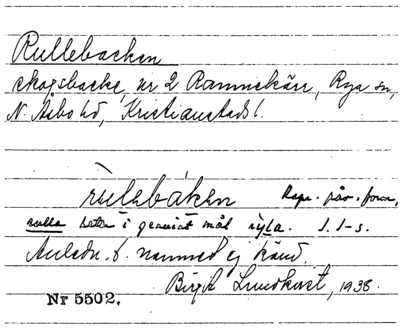 Rullebacken
skogsbacke, nr 2 Rammekärr, Rya sn,
N. Åsbo hd, Kristianstads l.
rulebáken
rulla heter i genuint mål
Anledn. t. namnet ej känd.
Birgit Lundkvist, 1938.
Nr 5502.